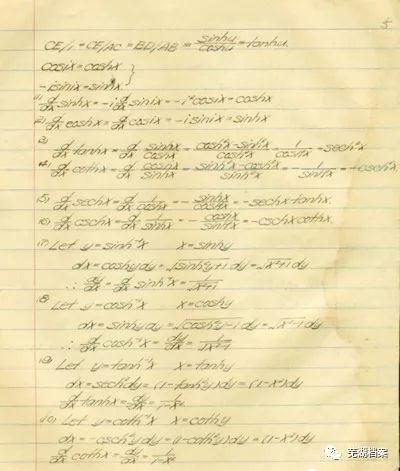 5
CE/1 = CE/AC = BD/AB = sinhu/coshu = tanhu.
cosix = coshx }
-isinix = sinhx.
(1) d/dx sinhx = -i d/dx sinix = -i² cosix = coshx
(2) d/dx coshx = d/dx cosix = -isinix = sinhx
(3) d/dx tanhx = d/dx sinhx/coshx = cosh²x-sinh²x/cosh²x = 1/cosh²x = sech²x
(4) d/dx cothx = d/dx coshx/sinhx = sinh²x-cosh²x/sinh²x = -1/sinh²x = -csch²x
(5) d/dx sechx = d/dx 1/coshx = -sinhx/cosh²x = -sechx tanhx.
(6) d/dx cschx = d/dx 1/sinhx = -coshx/sinh²x = -cschx cothx.
(7) Let y = sinh⁻¹x x = sinhy
dx = coshydy = √sinh²y+1 dy = √x²+1 dy
∴ dy/dx = d/dx sinh⁻¹x = 1/√x²+1
(8) Let y = cosh⁻¹x x = coshy
dx = sinhydy = √cosh²y-1 dy = √x²-1 dy
∴ d/dx cosh⁻¹x = dy/dx = 1/√x²-1
(9) Let y = tanh⁻¹x x = tanhy
dx = sech²ydy = (1-tanh²y)dy = (1-x²)dy
d/dx tanh⁻¹x = dy/dx = 1/1-x²
(10) Let y = coth⁻¹x x = cothy
dx = -csch²ydy = (1-coth²y)dy = (1-x²)dy
d/dx coth⁻¹x = dy/dx = 1/1-x²
芜湖档案